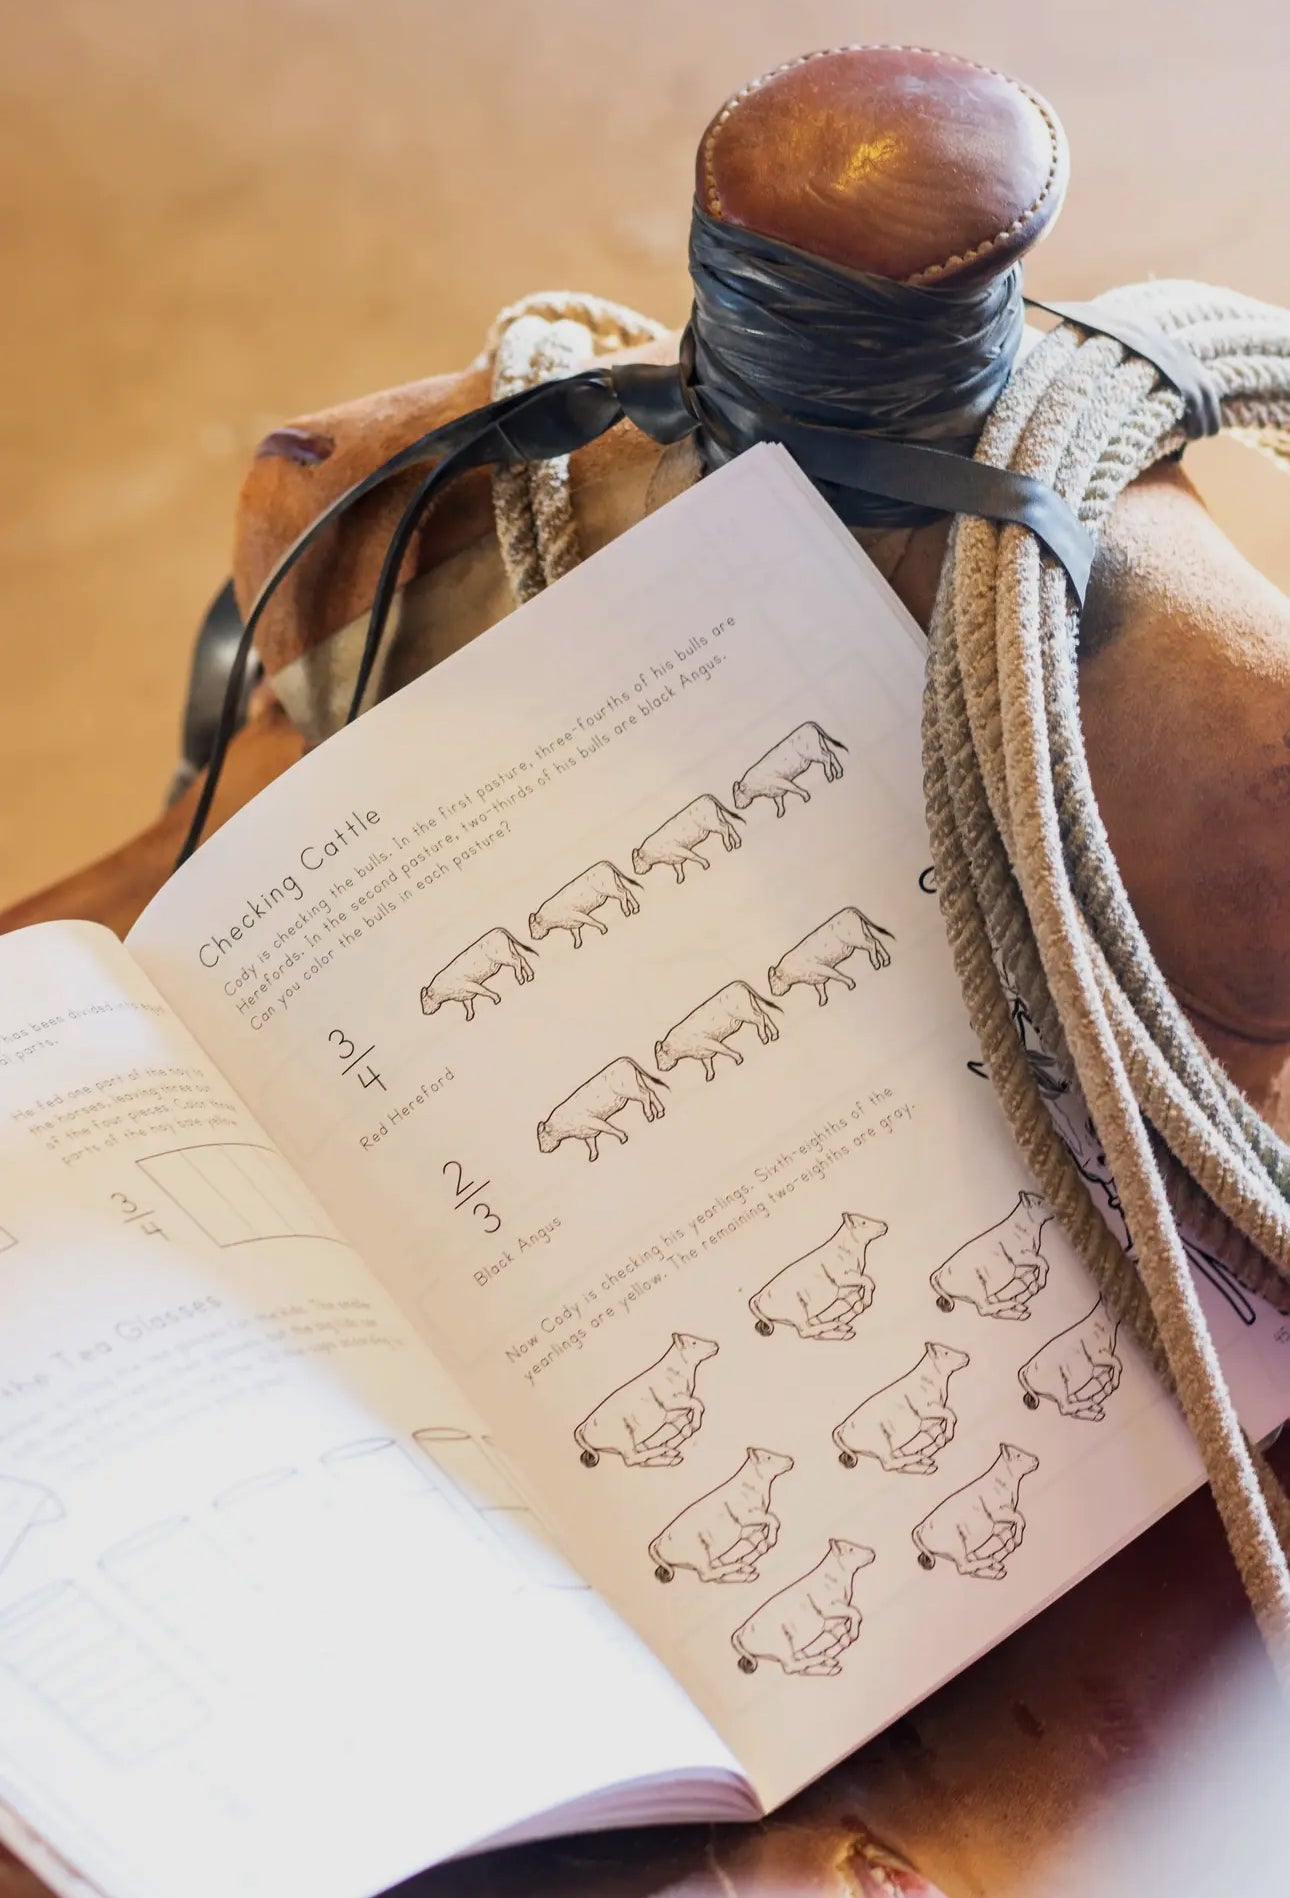 has been divided into equ
al parts.
He fed one part of the hay to
the horses, leaving three out
of the four pieces. Color three
parts of the hay bale yellow.
3
4
the Tea Glasses
Checking Cattle
Cody is checking the bulls. In the first pasture, three-fourths of his bulls are
Herefords. In the second pasture, two-thirds of his bulls are black Angus.
Can you color the bulls in each pasture?
3
4
Red Hereford
2
3
Black Angus
Now Cody is checking his yearlings. Sixth-eighths of the
yearlings are yellow. The remaining two-eighths are gray.
45